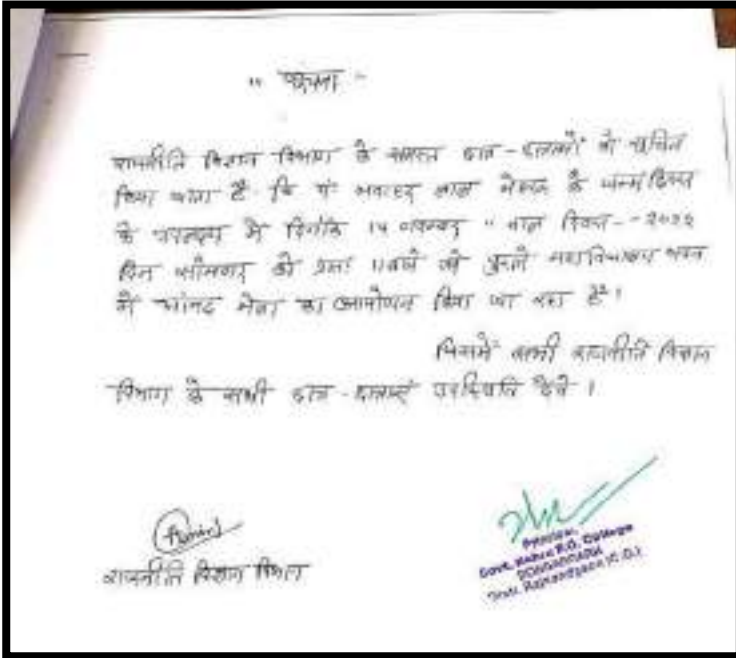 " सूचना -
राजनीति विज्ञान विभाग के समस्त छात्र - छात्राओं को सूचित
किया जाता है कि पं जवाहर लाल नेहरू के जन्म दिवस
के उपलक्ष्य में दिनांक 14 नवम्बर " बाल दिवस - - 2022
दिन सोमवार को प्रातः 11 बजे से पुराने महाविद्यालय भवन
में आंनद मेला का आयोजन किया जा रहा है।
जिसमें सभी राजनीति विज्ञान
विभाग के सभी छात्र - छात्राएं उपस्थिति देवें ।
राजनीति विज्ञान विभाग
Principal,
Govt. Nehru P.G. College
DONGARGARH
Distt. Rajnandgaon (C.G.)